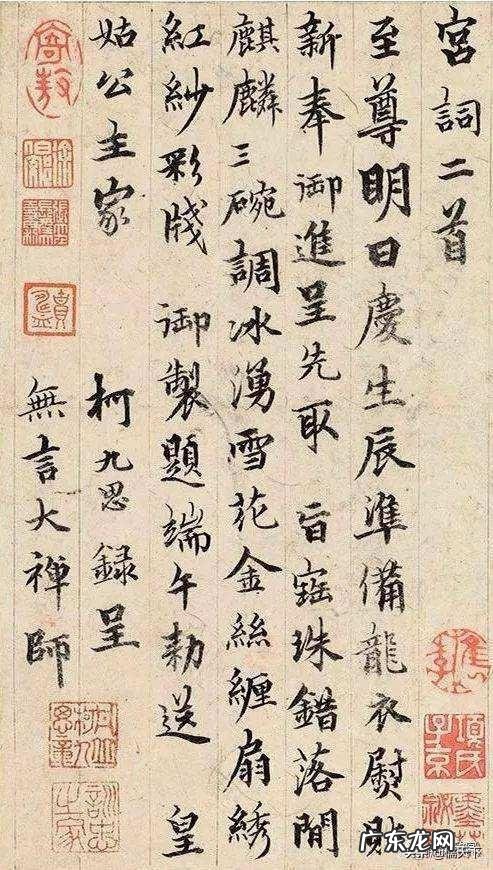 宮詞二首
至尊明日慶生辰準備龍衣熨貼
新奉御進呈先取 旨寶珠錯落間
麒麟三碗調冰湧雪花金絲纏扇綉
紅紗彩牋 御製題端午勅送 皇
姑公主家
柯九思錄呈
無言大禪師
項氏子京
訓忠之家
广东龙网